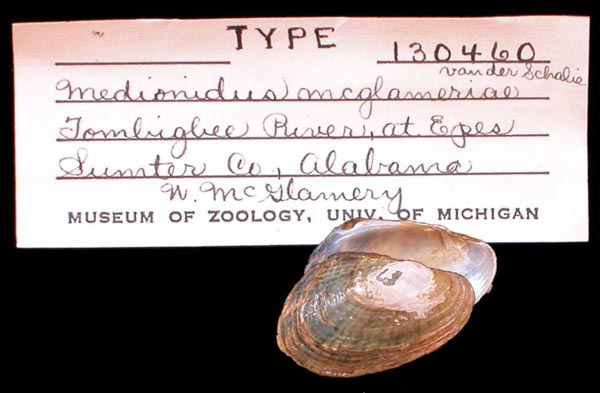 TYPE 130460
van der Schalie
Medionidus mcglameriae
Tombigbee River, at Epes
Sumter Co., Alabama
W. McGlamery
MUSEUM OF ZOOLOGY, UNIV. OF MICHIGAN